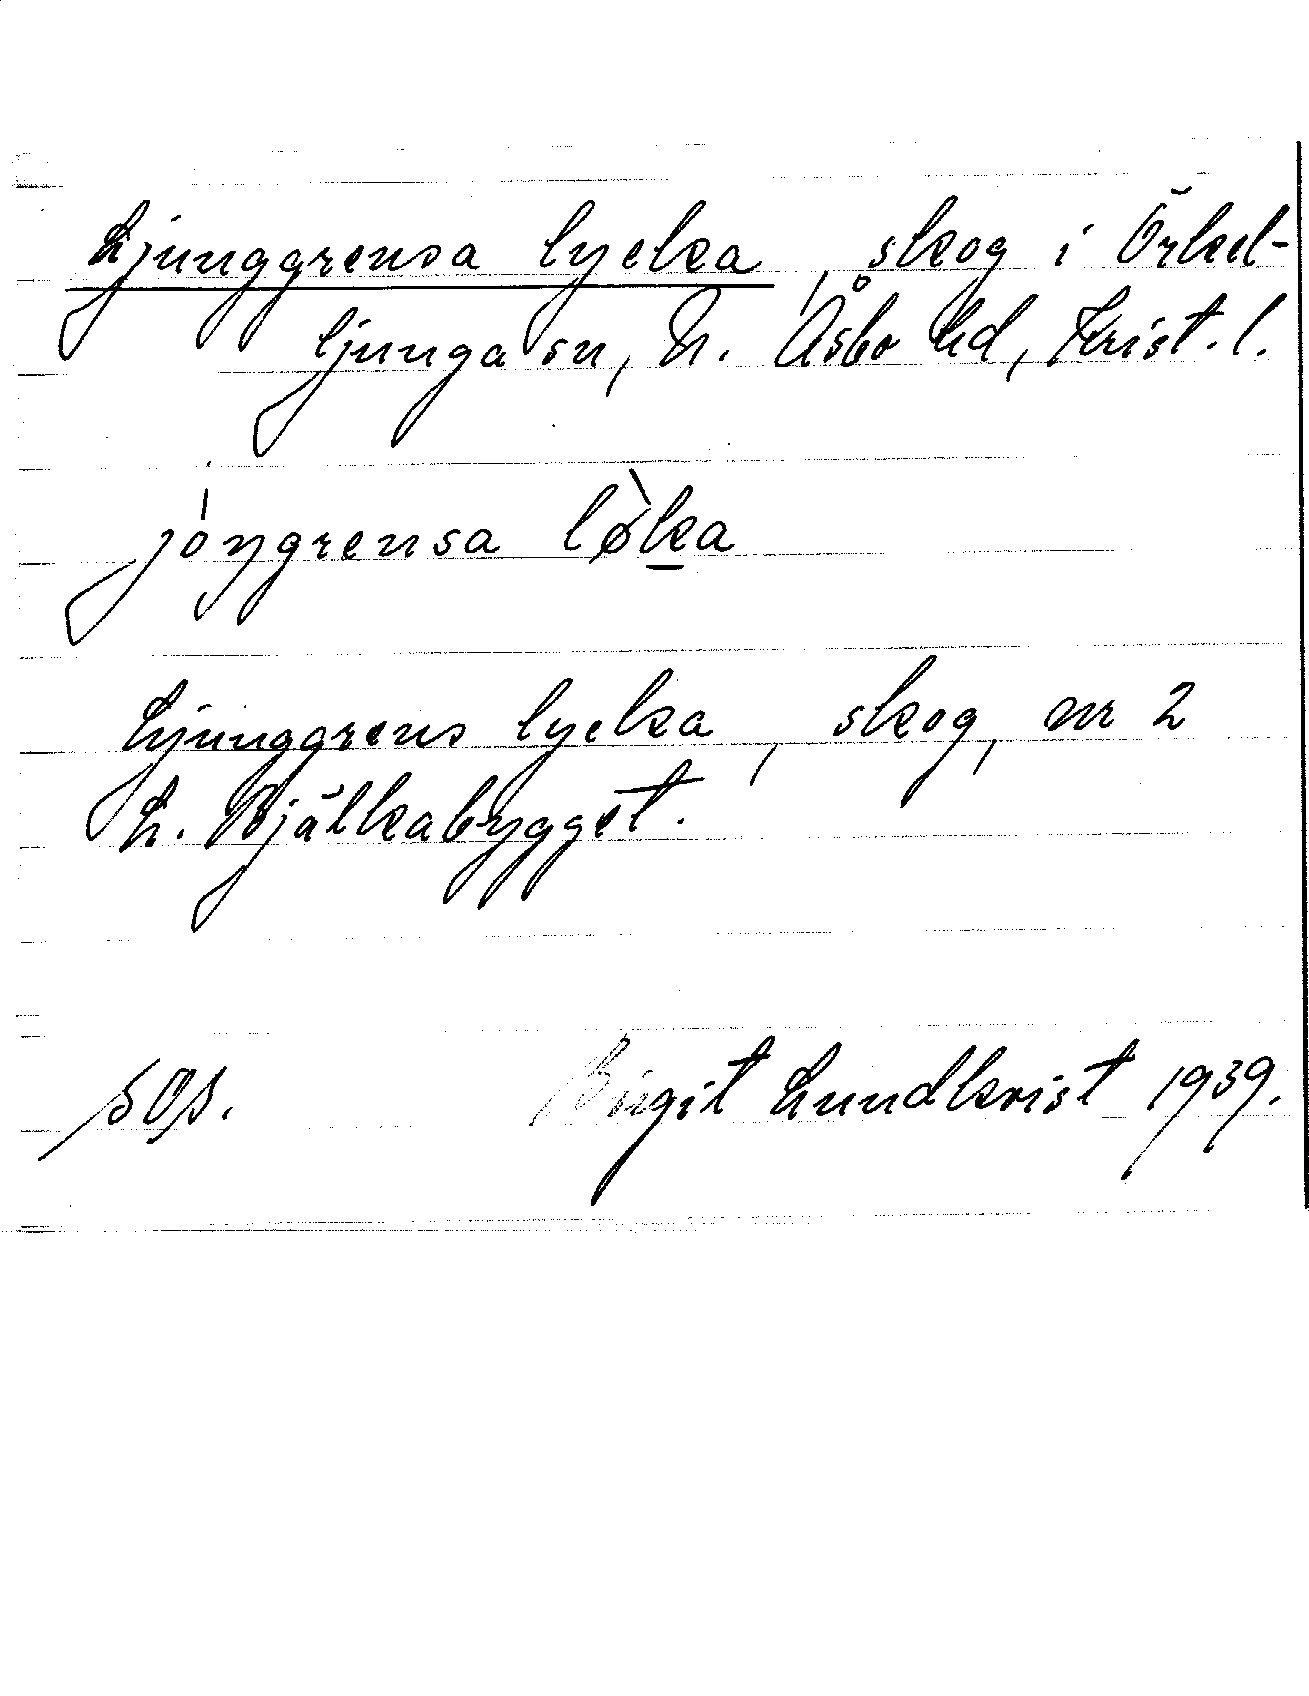 Ljunggrensa lycka, skog i Örkel-
ljunga sn, N. Åsbo hd, Krist. l.
jòŋgrensa lø̀ka
Ljunggrens lycka, skog, nr 2
L. Bjälkabygget.
SOS. Birgit Lundkvist 1939.